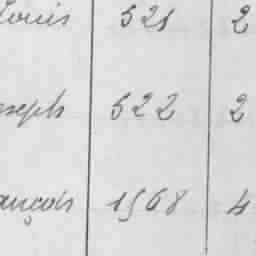 Louis 521 2
oseph 522 2
ançois 1568 4